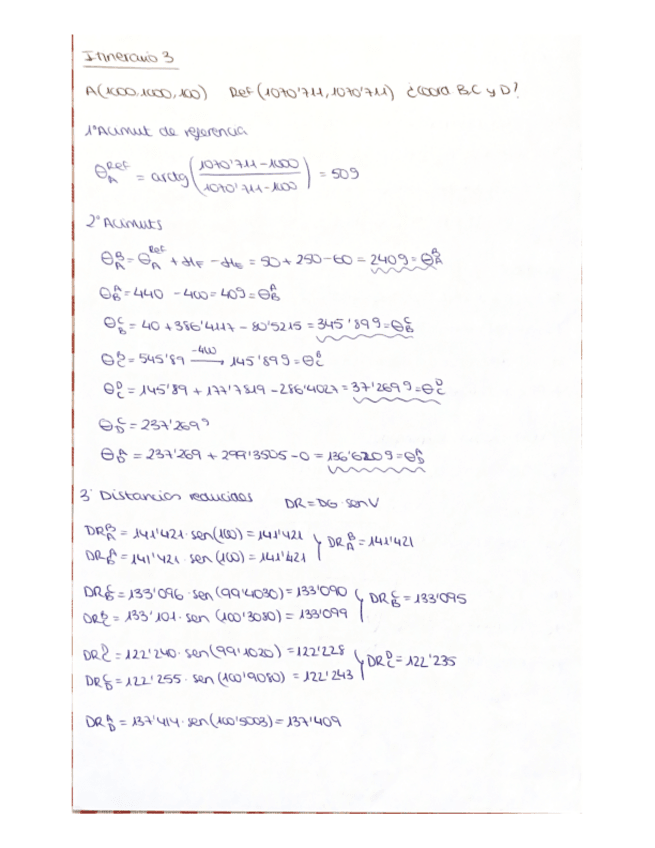 Itinerario 3
A(1000,1000,100) Ref(1070'711,1070'711) ¿Coord B,C y D?
1º Acimut de referencia
θ_A^Ref = arctg(1070'711-1000 / 1070'711-1000) = 50g
2º Acimuts
θ_A^B = θ_A^Ref + dlF - dlE = 50 + 250 - 60 = 240g = θ_A^B
θ_B^A = 440 - 400 = 40g = θ_B^A
θ_B^C = 40 + 386'4117 - 80'5215 = 345'89g = θ_B^C
θ_C^B = 545'89 -400→ 145'89g = θ_C^B
θ_C^D = 145'89 + 177'7819 - 286'4027 = 37'269g = θ_C^D
θ_D^C = 237'269g
θ_D^A = 237'269 + 299'3505 - 0 = 136'620g = θ_D^A
3º Distancias reducidas DR = DG · sen V
DR_A^B = 141'421 · sen(100) = 141'421 } DR_A^B = 141'421
DR_B^A = 141'421 · sen(100) = 141'421
DR_B^C = 133'096 · sen(99'4030) = 133'090 } DR_B^C = 133'095
DR_C^B = 133'101 · sen(100'3080) = 133'099
DR_C^D = 122'240 · sen(99'1020) = 122'228 } DR_C^D = 122'235
DR_D^C = 122'255 · sen(100'9080) = 122'243
DR_D^A = 137'414 · sen(100'5003) = 137'409